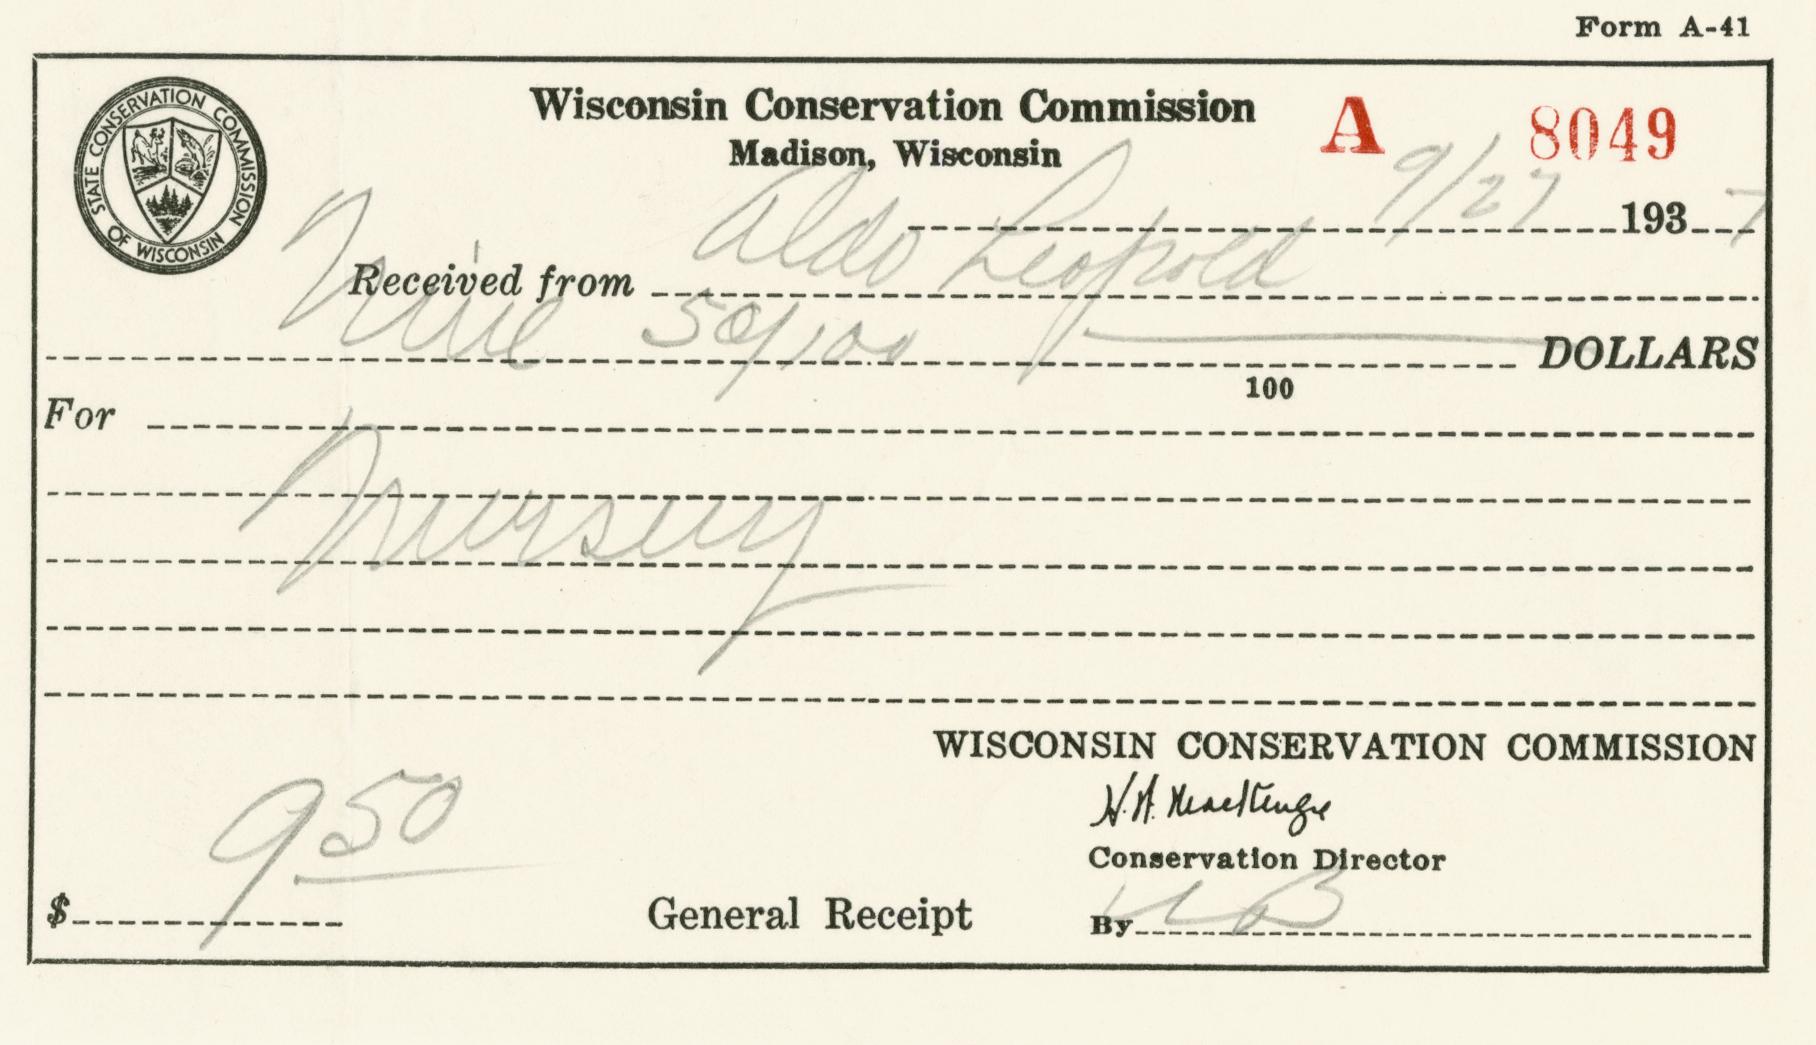 Form A-41
STATE CONSERVATION COMMISSION OF WISCONSIN
Wisconsin Conservation Commission
Madison, Wisconsin
A 8049
9/27 1937
Received from Aldo Leopold
Nine 50/100 DOLLARS
100
For
Nursery
WISCONSIN CONSERVATION COMMISSION
H. W. MacKenzie
Conservation Director
$ 9 50
General Receipt
By